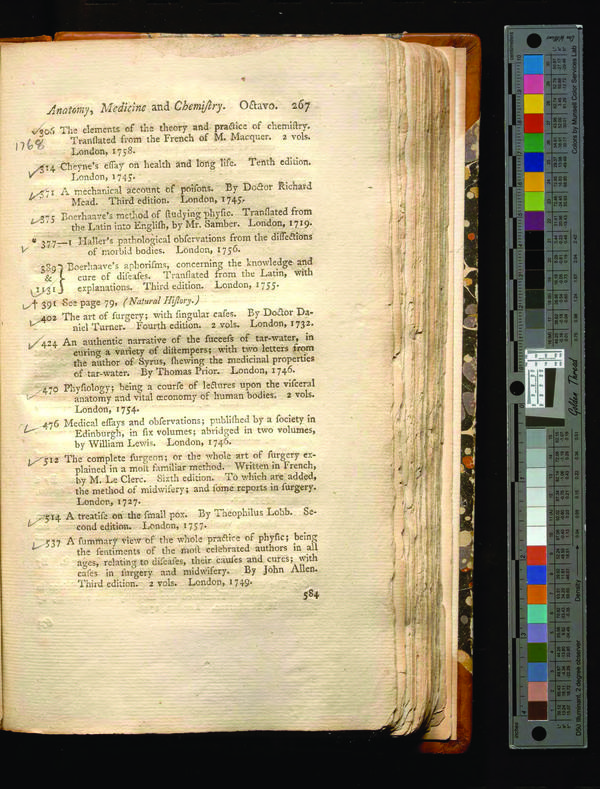 Anatomy, Medicine and Chemiſtry. Octavo. 267
306 The elements of the theory and practice of chemiſtry.
1768
Tranſlated from the French of M. Macquer. 2 vols.
London, 1758.
314 Cheyne's eſſay on health and long life. Tenth edition.
London, 1745.
371 A mechanical account of poiſons. By Doctor Richard
Mead. Third edition. London, 1745.
375 Boerhaave's method of ſtudying phyſic. Tranſlated from
the Latin into Engliſh, by Mr. Samber. London, 1719.
* 377—1 Haller's pathological obſervations from the diſſections
of morbid bodies. London, 1756.
389 } Boerhaave's aphoriſms, concerning the knowledge and
& } cure of diſeaſes. Tranſlated from the Latin, with
1131 } explanations. Third edition. London, 1755.
† 391 See page 79, (Natural Hiſtory.)
402 The art of ſurgery; with ſingular caſes. By Doctor Da-
niel Turner. Fourth edition. 2 vols. London, 1732.
424 An authentic narrative of the ſucceſs of tar-water, in
curing a variety of diſtempers; with two letters from
the author of Syrus, ſhewing the medicinal properties
of tar-water. By Thomas Prior. London, 1746.
470 Phyſiology; being a courſe of lectures upon the viſceral
anatomy and vital œconomy of human bodies. 2 vols.
London, 1754.
476 Medical eſſays and obſervations; publiſhed by a ſociety in
Edinburgh, in ſix volumes; abridged in two volumes,
by William Lewis. London, 1746.
512 The complete ſurgeon; or the whole art of ſurgery ex-
plained in a moſt familiar method. Written in French,
by M. Le Clerc. Sixth edition. To which are added,
the method of midwifery; and ſome reports in ſurgery.
London, 1727.
514 A treatiſe on the ſmall pox. By Theophilus Lobb. Se-
cond edition. London, 1757.
537 A ſummary view of the whole practice of phyſic; being
the ſentiments of the moſt celebrated authors in all
ages, relating to diſeaſes, their cauſes and cures; with
caſes in ſurgery and midwifery. By John Allen.
Third edition. 2 vols. London, 1749.
584
Colors by Munsell Color Services Lab
Golden Thread
Density
D50 Illuminant, 2 degree observer